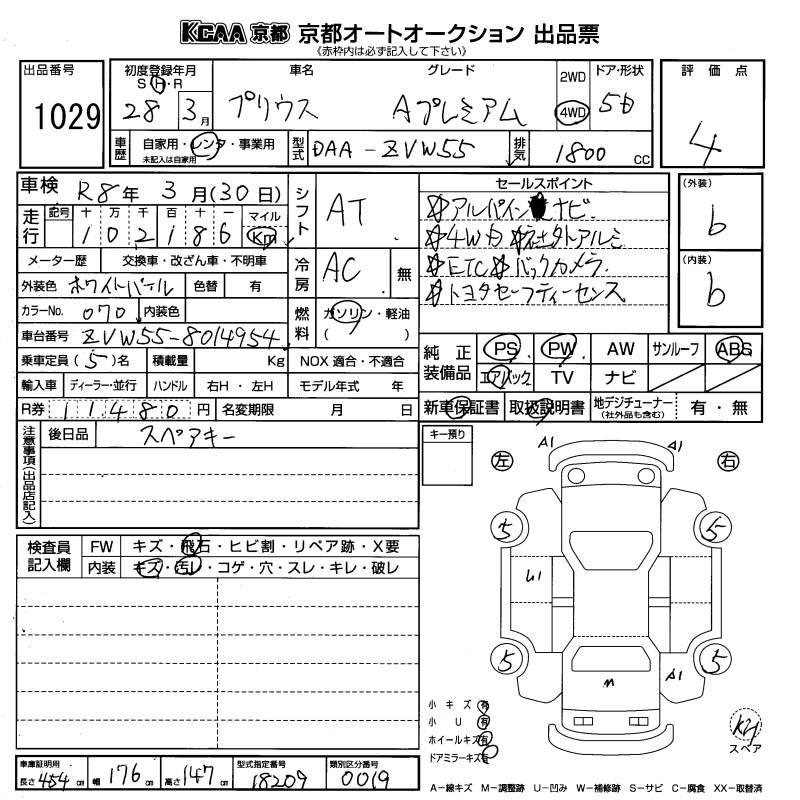 KCAA 京都 京都オートオークション 出品票
《赤枠内は必ず記入して下さい》
出品番号
1029
初度登録年月
S・H・R
28 3月
車名
プリウス
グレード
Aプレミアム
2WD
4WD
ドア・形状
5D
評価点
4
車歴
自家用・レンタ・事業用
未記入は自家用
型式
DAA-ZVW55
排気
1800 CC
車検 R8年 3月(30日)
走行
記号 十 万 千 百 十 一 マイル
102186 Km
メーター歴 交換車・改ざん車・不明車
外装色 ホワイトパール 色替 有
カラーNo. 070 内装色
車台番号 ZVW55-8014954
乗車定員(5)名 積載量 Kg
輸入車 ディーラー・並行 ハンドル 右H・左H
R券 11480円 名変期限 月 日
シフト AT
冷房 AC 無
燃料 ガソリン・軽油
( )
NOX 適合・不適合
モデル年式 年
セールスポイント
☆アルパイン ナビ
☆4WD ☆社外アルミ
☆ETC☆バックカメラ
☆トヨタセーフティーセンス
(外装)
b
(内装)
b
純正装備品
PS PW AW サンルーフ ABS
エアバック TV ナビ
新車保証書 取扱説明書 地デジチューナー 有・無
(社外品も含む)
注意事項(出品店記入)
後日品 スペアキー
キー預り
検査員記入欄
FW キズ・飛石・ヒビ割・リペア跡・X要
内装 キズ・汚レ・コゲ・穴・スレ・キレ・破レ
左 A1 A1 右
5 5
U1
5 5
M A1
小キズ 有
小U 有
ホイールキズ 有
ドアミラーキズ 有
スペア
車庫証明用
長さ 454cm 幅 176cm 高さ 147cm
型式指定番号
18209
類別区分番号
0019
A−線キズ M−調整跡 U−凹み W−補修跡 S−サビ C−腐食 XX−取替済